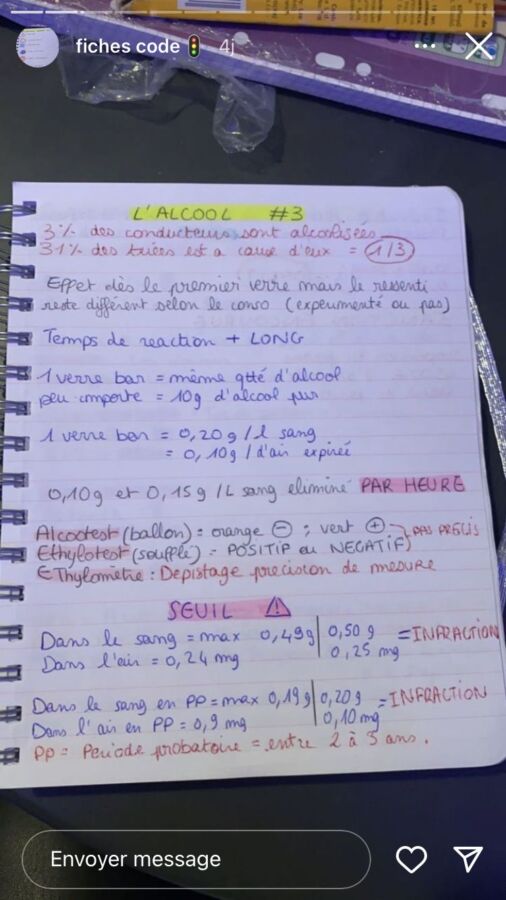 fiches code 🚦 4j
L'ALCOOL #3
3% des conducteurs sont alcoolisées
31% des tuées est a cause d'eux = 1/3
Effet dès le premier verre mais le ressenti
reste différent selon le conso (expeumenté ou pas)
Temps de reaction + LONG
1 verre bar = même qtté d'alcool
peu importe = 10g d'alcool pur
1 verre bar = 0,20g/l sang
= 0,10g/d'air expirée
0,10g et 0,15g/L sang eliminé PAR HEURE
Alcootest (ballon) = orange ⊖ ; vert ⊕
Ethylotest (soufflé) = POSITIF ou NEGATIF
PAS PRECIS
EThylomètre : Depistage precision de mesure
SEUIL ⚠
Dans le sang = max 0,49g | 0,50g = INFRACTION
Dans l'air = 0,24 mg | 0,25 mg
Dans le sang en PP = max 0,19g | 0,20g = INFRACTION
Dans l'air en PP = 0,9 mg | 0,10 mg
PP = Periode probatoire = entre 2 à 3 ans.
Envoyer message